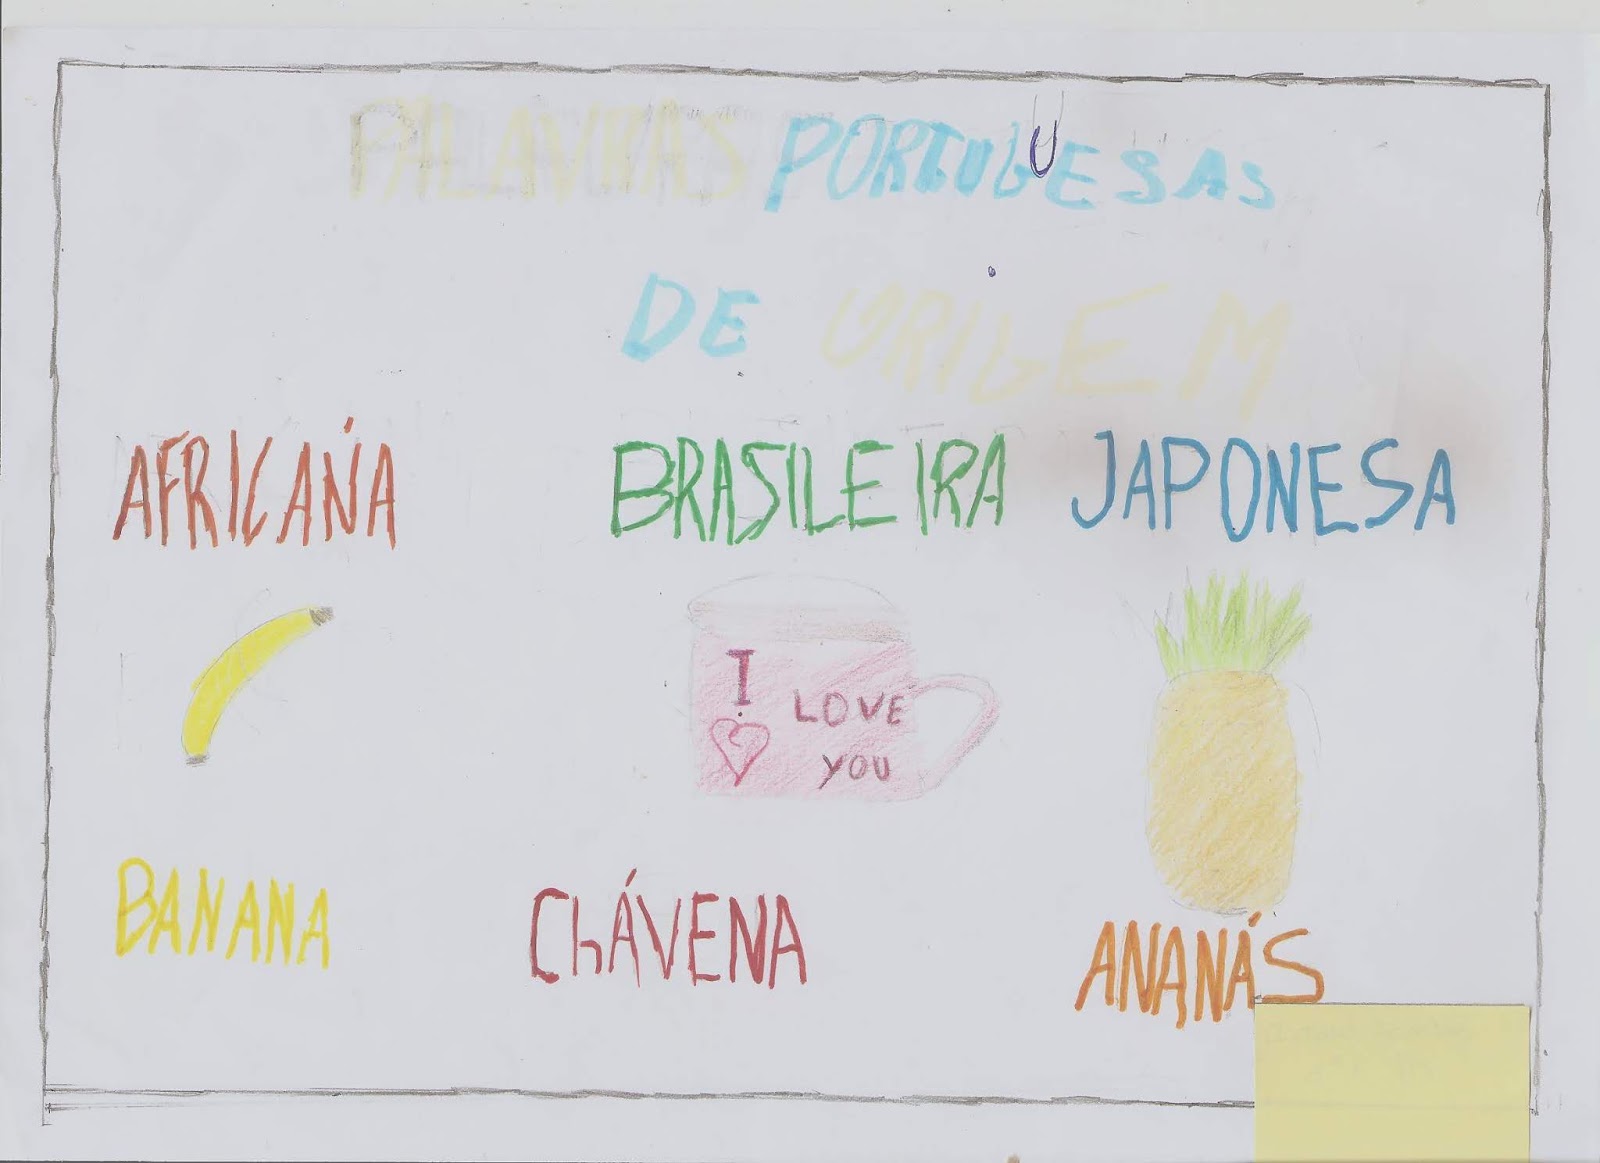 PALAVRAS PORTUGUESAS
DE ORIGEM
AFRICANA BRASILEIRA JAPONESA
I LOVE
YOU
BANANA ChÁVENA ANANÁS